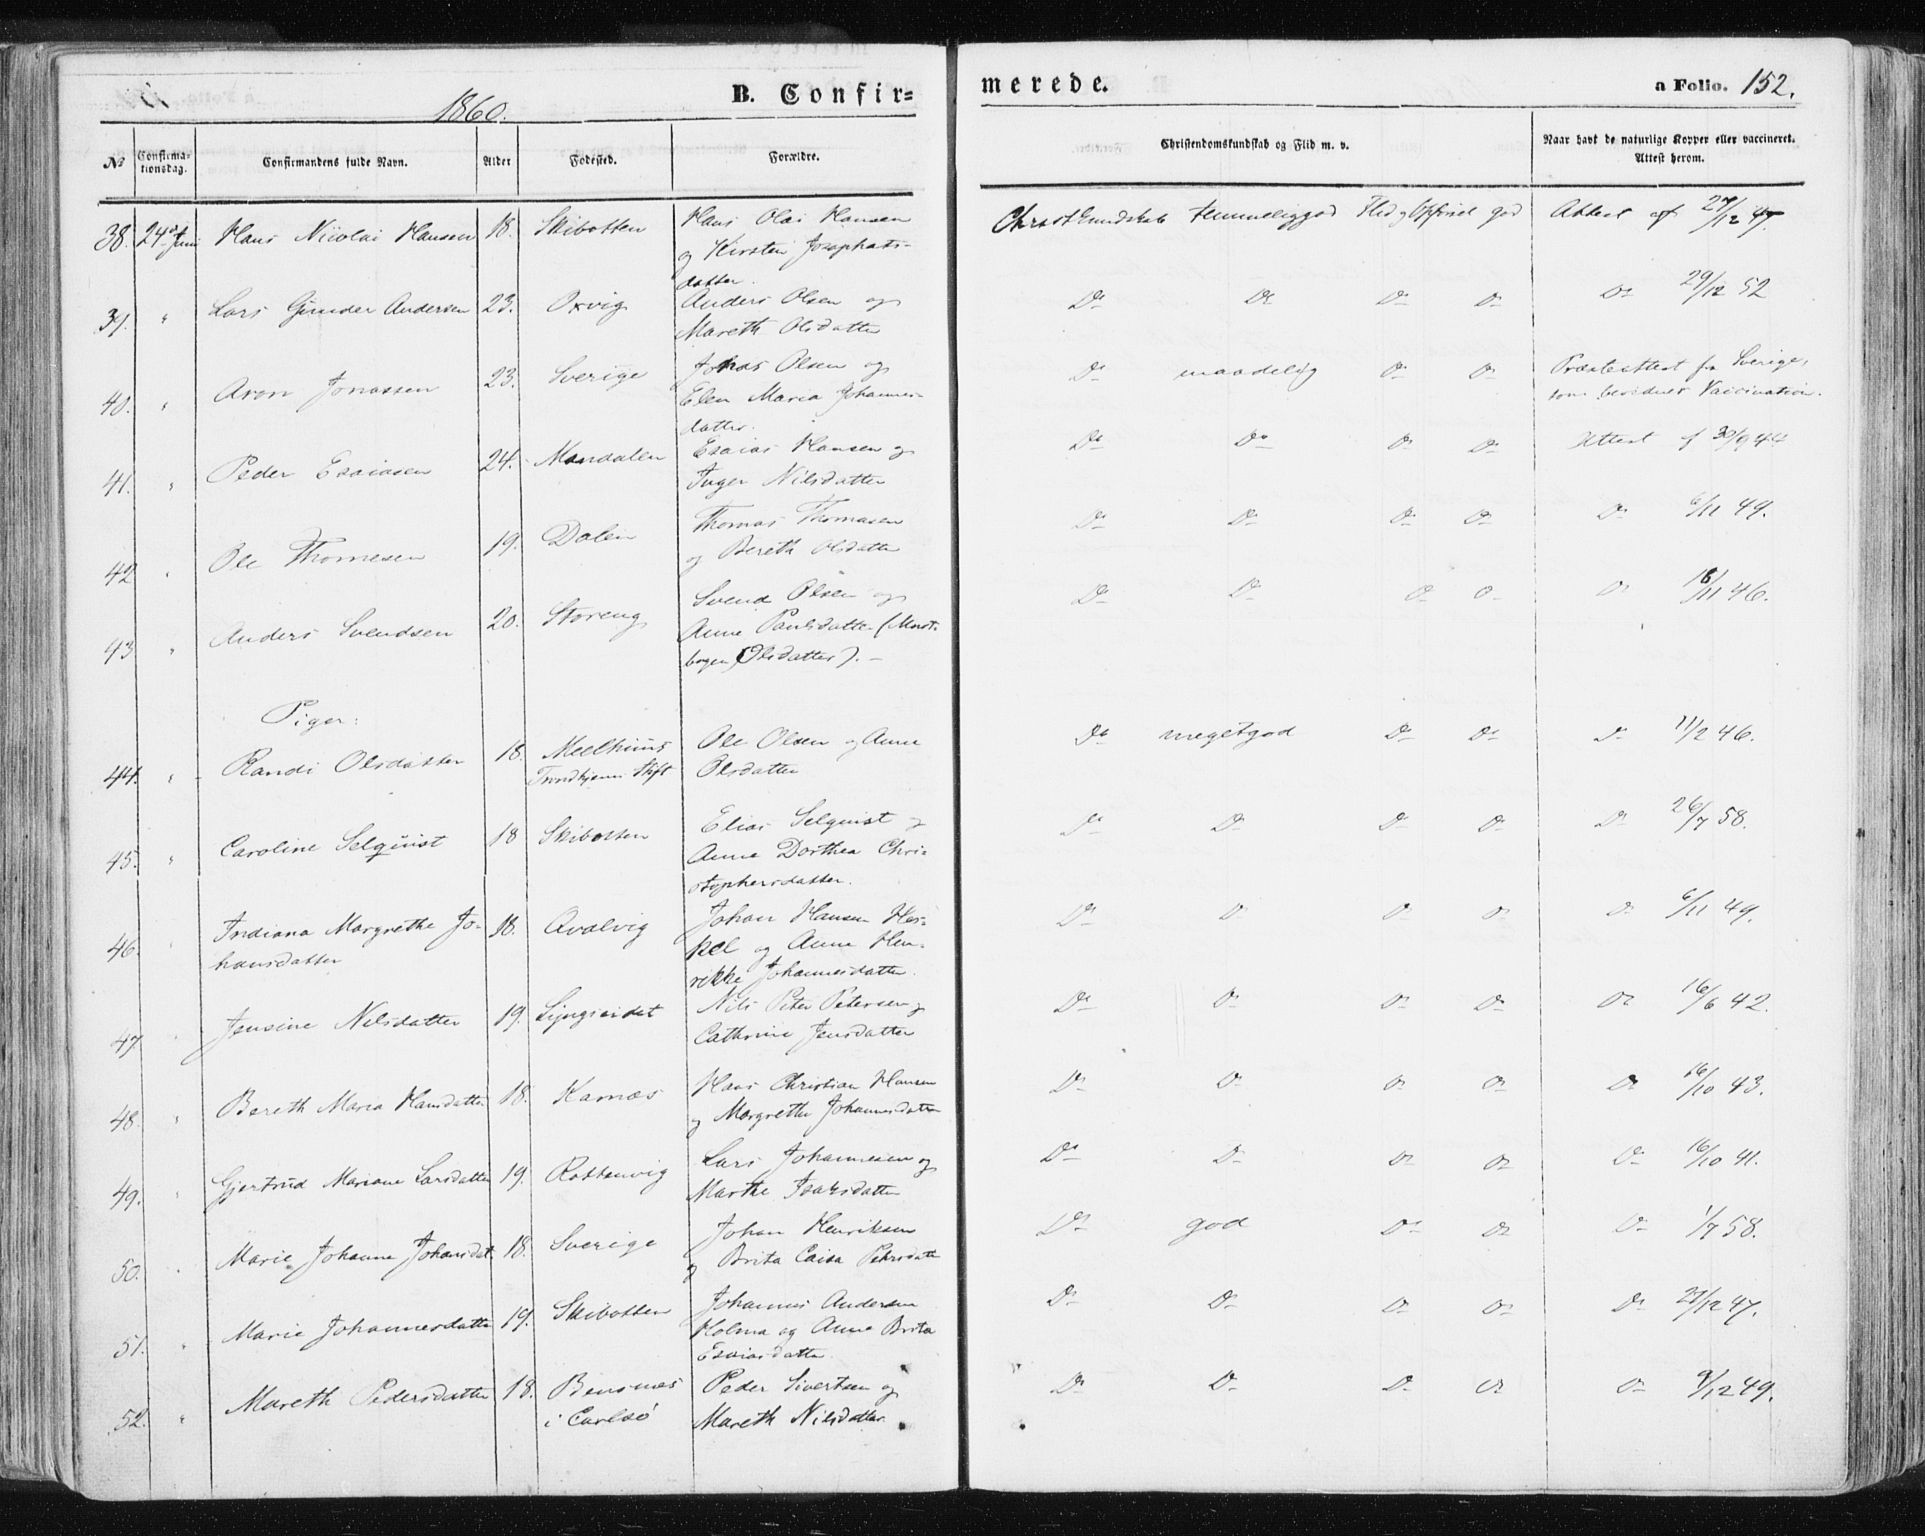 1860.
B. Confir=
merede.
a Folio. 152.
№
Confirma-
tionsdag.
Confirmandens fulde Navn.
Alder
Fødested.
Forældre.
Christendomskundskab og Flid m. v.
Naar havt de naturlige Kopper eller vaccineret.
Attest herom.
38. 24de Juni Hans Nicolai Hansen 18. Skibotten Hans Olai Hansen
og Kirsten Josephats-
datter.
Christ Kundskab temmeliggod Flid og Opførsel god Attest af 27/12 47.
39. " Lars Gunder Andersen 23. Oxvig Anders Olsen og
Mareth Olsdatter
Do Do Do Do Do 29/12 52
40. " Aron Jonassen 23. Sverige Johas Olsen og
Elen Maria Johannes-
datter.
Do maadelig Do Do Præsteattest fra Sverige,
som bevidner Vaccination.
41. " Peder Esaiasen 24. Mandalen Esaias Hansen og
Inger Nilsdatter
Do Do Do Do Attest af 30/9 44
42 " Ole Thomesen 19. Dalen Thomas Thomasen
og Bereth Olsdatter
Do Do Do Do Do 6/11 49.
43. " Anders Svendsen 20. Storeng Svend Olsen og
Anne Paulsdatter (Minist.
bogen, Olsdatter). –
Do Do Do Do Do 18/11 46.
Piger:
44. " Randi Olsdatter 18. Meelhuus
Trondhjems Stift
Ole Olsen og Anne
Olsdatter
Do megetgod Do Do Do 11/2 46.
45. " Caroline Selquist 18 Skibotten Elias Selquist og
Anne Dorthea Chri-
stophersdatter.
Do Do Do Do Do 26/7 58.
46. " Indiana Margrethe Jo-
hansdatter
18. Qvalvig Johan Hansen Hes-
kel og Anne Hen-
rikke Johannesdatter.
Do Do Do Do Do 6/11 49.
47. " Jensine Nilsdatter 19. Lyngseidet Nils Peter Petersen og
Cathrine Jensdatter
Do Do Do Do Do 16/6 42.
48. " Bereth Maria Hansdatter 18. Karnæs Hans Christian Hansen
og Margrethe Johannesdatter
Do Do Do Do Do 16/10 43.
49. " Gjertrud Mariane Larsdatter 19. Rottenvig Lars Johannesen og
Marthe Isaksdatter
Do Do Do Do Do 16/10 41.
50. " Marie Johanne Johansdat. 18. Sverige Johan Henriksen
og Brita Caisa Pehrsdatt
Do god Do Do Do 1/7 58.
51. " Marie Johannesdatter 19. Skibotten Johannes Andersen
Holma og Anne Brita
Esaiasdatter
Do Do Do Do Do 27/12 47.
52. " Mareth Pedersdatter 18. Bensnes
i Carlsø
Peder Sivertsen og
Mareth Nilsdatter.
Do Do Do Do Do 9/12 49.